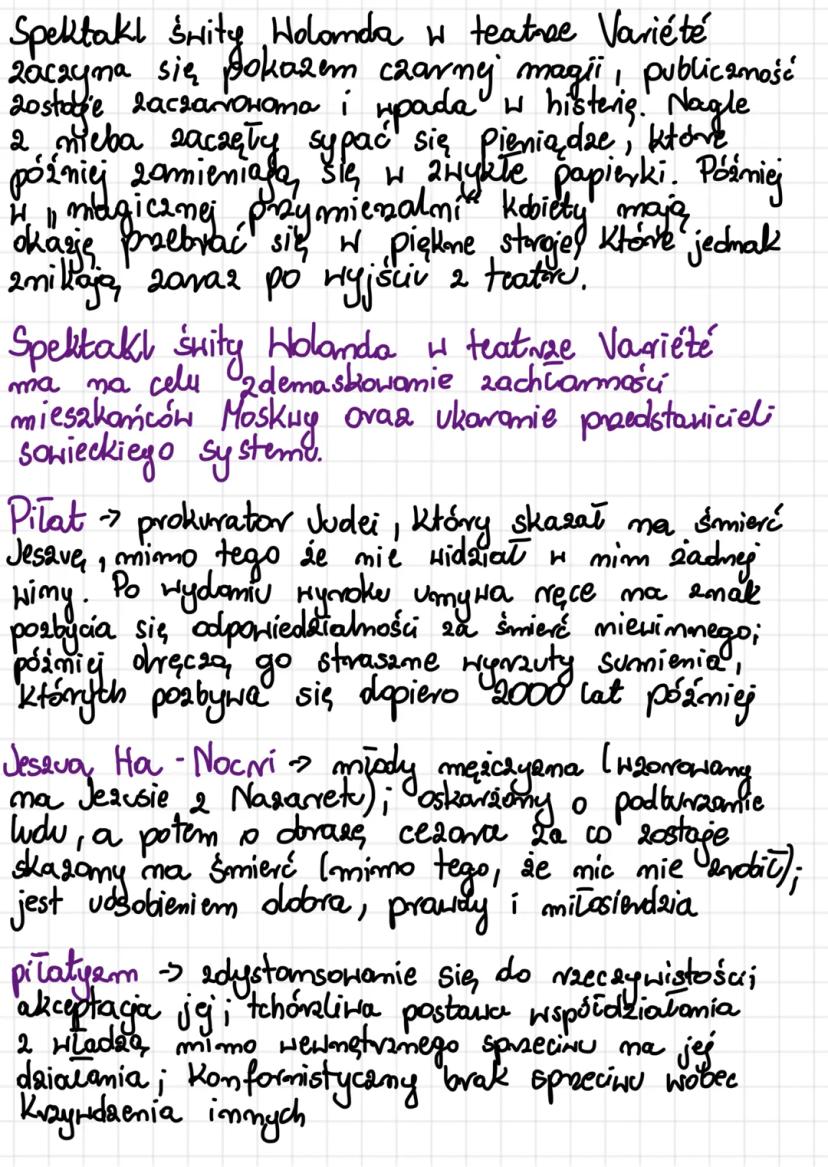 Spektakl świty Wolanda w teatrze Variété
zaczyna się pokazem czarnej magii, publiczność
zostaje zaczarowana i wpada w histerię. Nagle
z nieba zaczęły sypać się pieniądze, które
później zamieniają się w zwykłe papierki. Później
w "magicznej przymierzalni" kobiety mają
okazję przebrać się w piękne stroje, które jednak
znikają zaraz po wyjściu z teatru.
Spektakl świty Wolanda w teatrze Variété
ma na celu zdemaskowanie zachłanności
mieszkańców Moskwy oraz ukaranie przedstawicieli
sowieckiego systemu.
Piłat -> prokurator Judei, który skazał na śmierć
Jeszuę, mimo tego że nie widział w nim żadnej
winy. Po wydaniu wyroku umywa ręce na znak
pozbycia się odpowiedzialności za śmierć niewinnego;
później dręczą go straszne wyrzuty sumienia,
których pozbywa się dopiero 2000 lat później
Jeszua Ha-Nocri -> młody mężczyzna (wzorowany
na Jezusie z Nazaretu); oskarżony o podburzanie
ludu, a potem o obrazę cezara za co zostaje
skazany na śmierć (mimo tego, że nic nie zrobił);
jest uosobieniem dobra, prawdy i miłosierdzia
piłatyzm -> zdystansowanie się do rzeczywistości;
akceptacja jej; tchórzliwa postawa współdziałania
z władzą mimo wewnętrznego sprzeciwu na jej
działania; konformistyczny brak sprzeciwu wobec
krzywdzenia innych